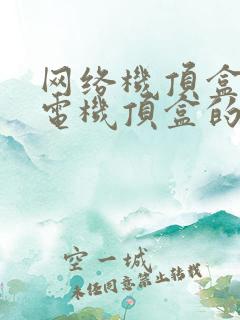 网络機頂盒
電機頂盒的
空一城
未经同意禁止转载